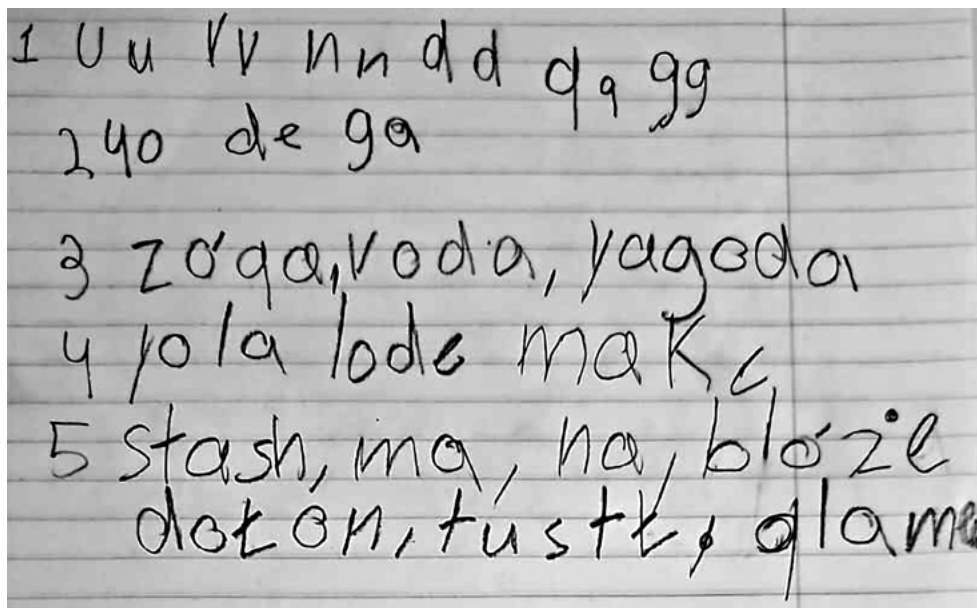 1 Uu Vv nn dd qq gg
2 yo de ga
3 zóga, voda, yagoda
4 yola lode mak,
5 stash, ma, na, blóże
dokon, tústk, glame